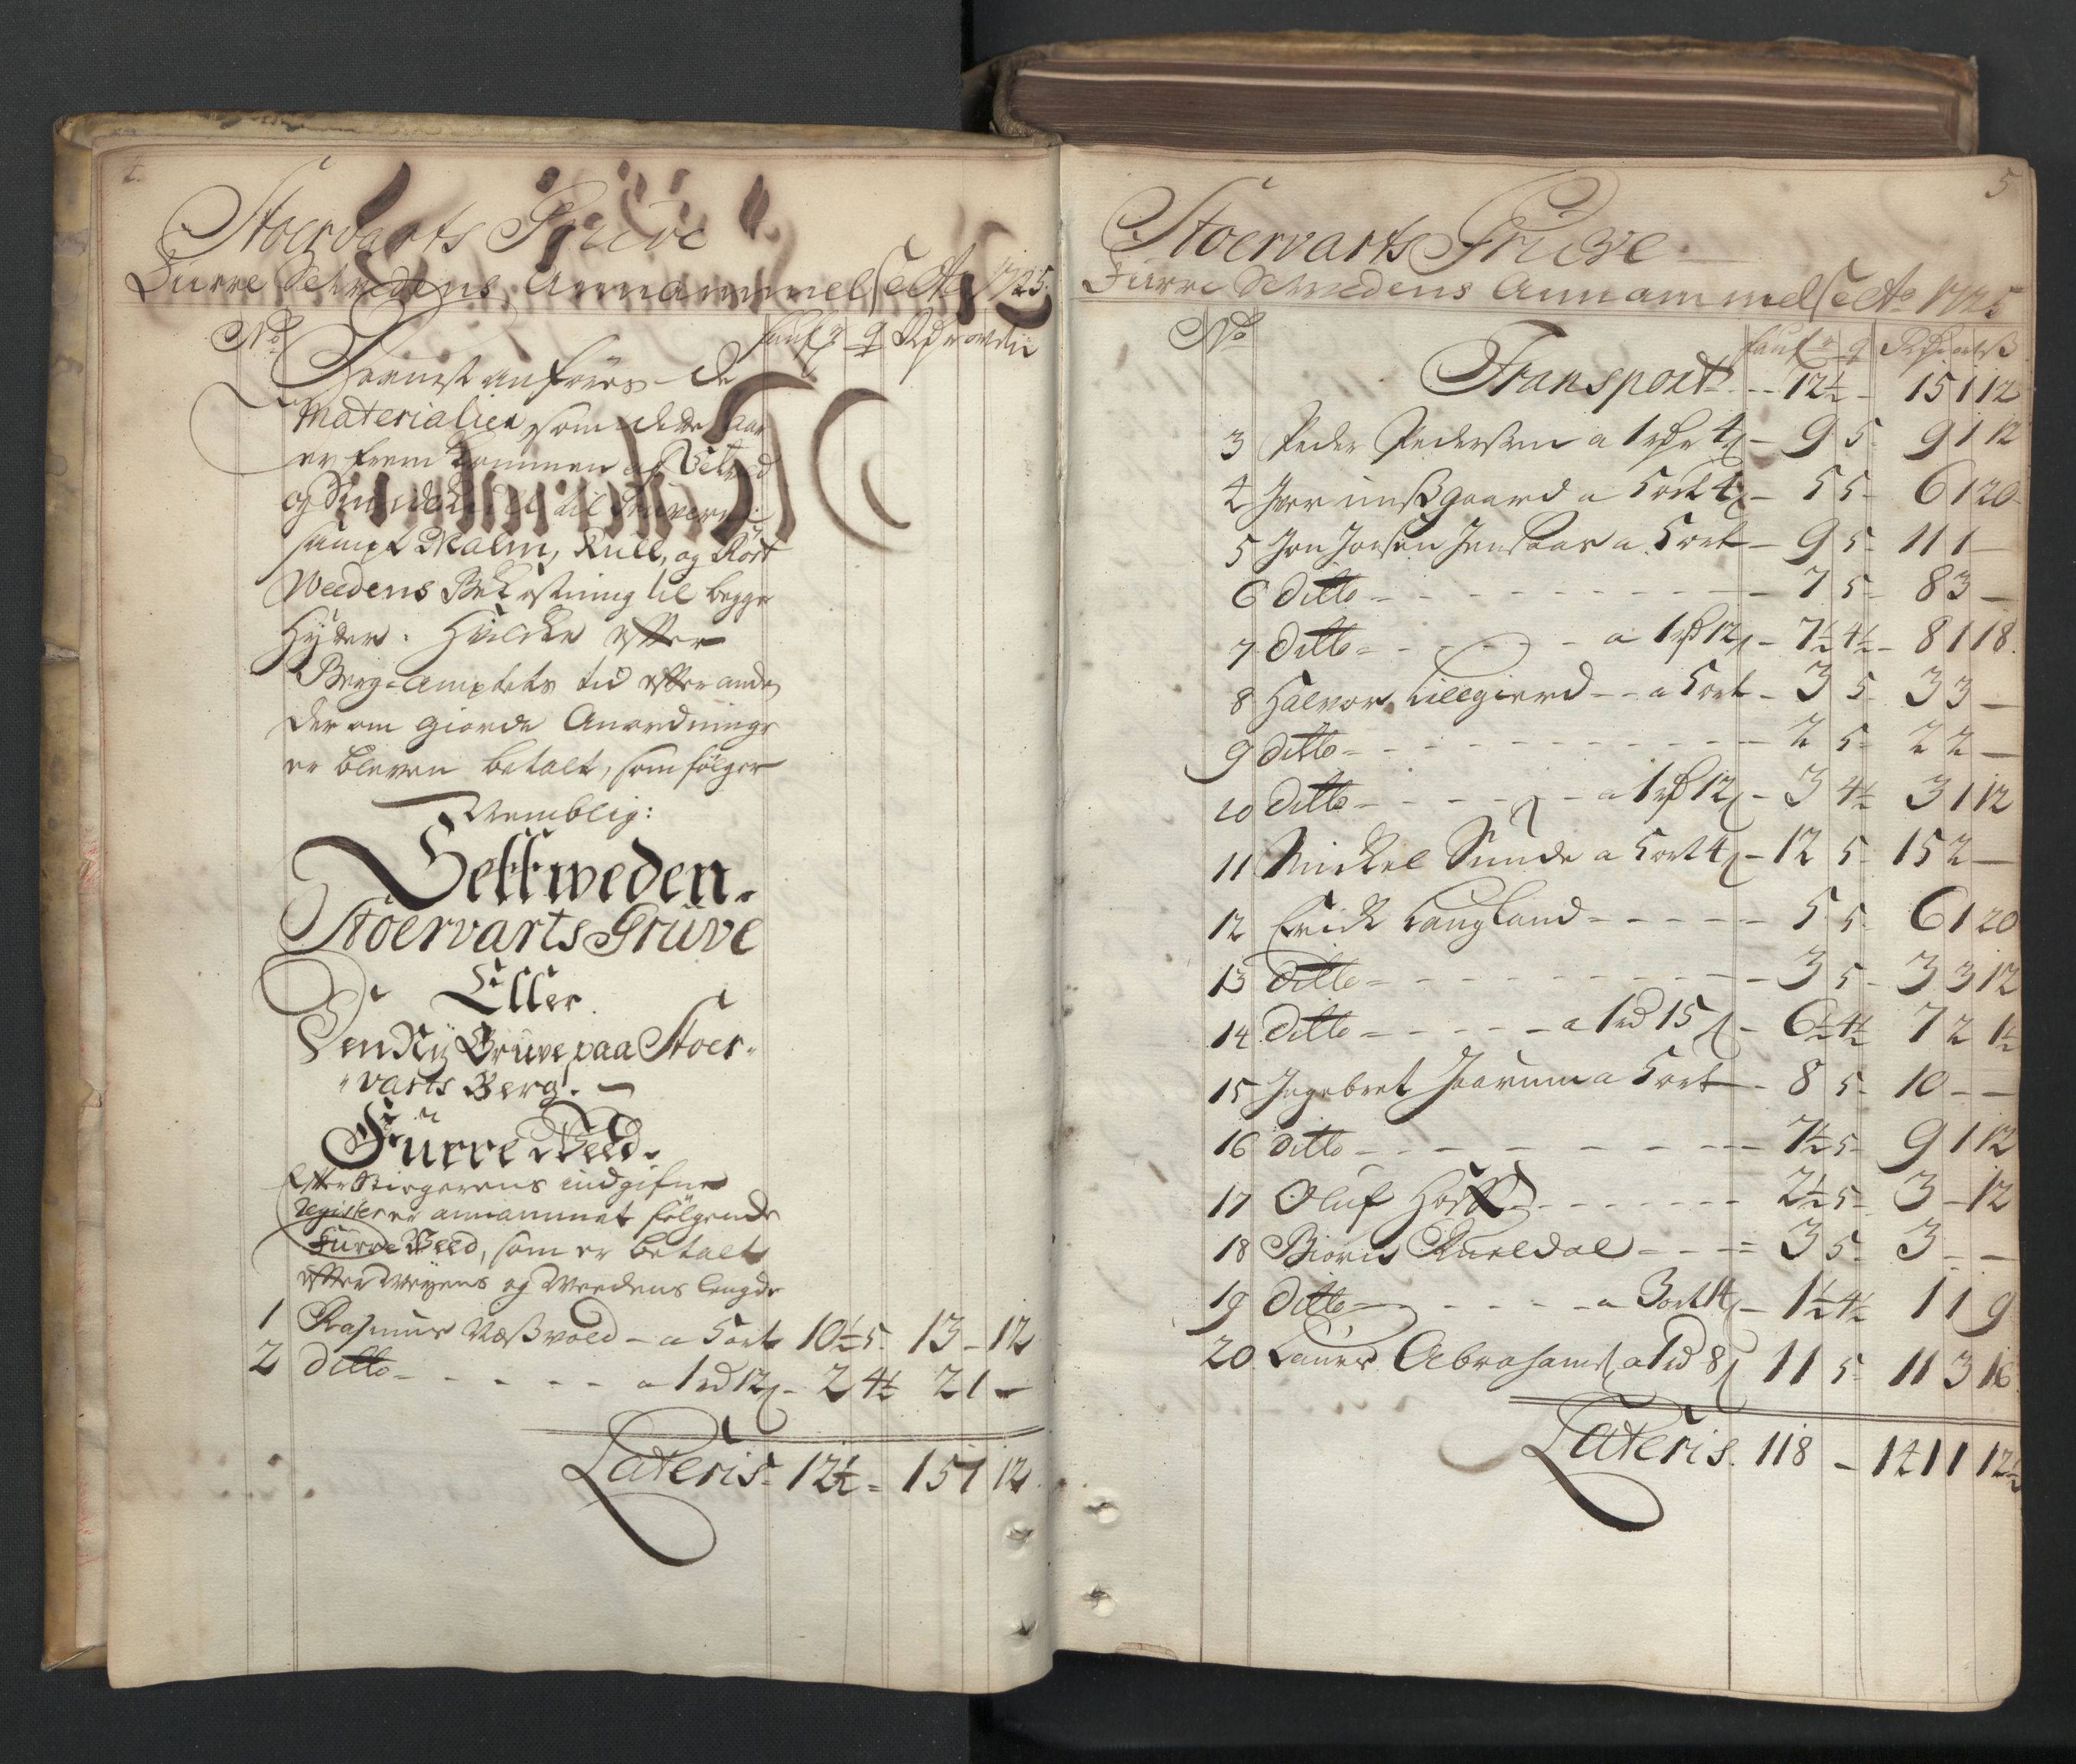 4.
Stoervarts Grüve
Furre Setvedens Annammelse Ao 1725.
No Fauf: q Rdr ort ß
Hernest anføres de
Materialier, som dette Aar
er frem kommen af Setved
og til Gruverne
sampt Malm, Kull, og Røst
Weedens Bekostning til begge
Hytter. Hvilke efter
Berg-Amptets tid efter anden
der om giorde Anordninger
er bleven betalt, som følger
Nemblig:
Settweden.
Stoervarts Grüve
Eller
Den Ny Gruve paa Stoer-
varts Berg.
Fürre Weed.
Efter Stigerens indgifne
Register er annammet følgende
Furre Weed, som er betalt
efter Veyens og Weedens lengde
1 Rasmus Næssvold - a 5 ort 10½ 5 13 - 12
2 Ditto - - - - - a 1 rd 12 ß - 2 4½ 2 1 -
Lateris - 12½ - 15 1 12
5
Stoervarts Grüve
Furre Setvedens Annammelse Ao 1725
No Fauf: q Rdr ort ß
Transport - - 12½ - 15 1 12
3 Peder Pedersen a 1 rdr 4 ß - 9 5 - 9 1 12
4 Iver gaard a 5 ort 4 ß - 5 5 - 6 1 20
5 Jon Jonsen a 5 ort - 9 5 - 11 1 -
6 Ditto - - - - - - - 7 5 - 8 3 -
7 Ditto - - - - - a 1 rd 12 ß - 7½ 4½ - 8 1 18
8 Halvor Lillegierd - - a 5 ort - 3 5 - 3 3 -
9 Ditto - - - - - - - 2 5 - 2 2 -
10 Ditto - - - - - a 1 rd 12 ß - 3 4½ 3 1 12
11 Mickel Sunde a 5 ort 4 ß - 12 5 - 15 2 -
12 Erich Langland - - - - - 5 5 - 6 1 20
13 Ditto - - - - - - - 3 5 - 3 3 12
14 Ditto - - - - - a 1 rd 15 ß - 6½ 4½ 7 2 1½
15 Ingebret a 5 ort - 8 5 - 10 - -
16 Ditto - - - - - - - 7½ 5 - 9 1 12
17 Oluf - - - - - - 2½ 5 - 3 - 12
18 Biørn - - - 3 5 - 3 - -
19 Ditto - - - - - a 3 ort 14 ß - 1½ 4½ 1 1 9
20 Laurs Abrahams. a 1 rd 8 ß 11 5 - 11 3 16
Lateris. 118 - 141 1 12½